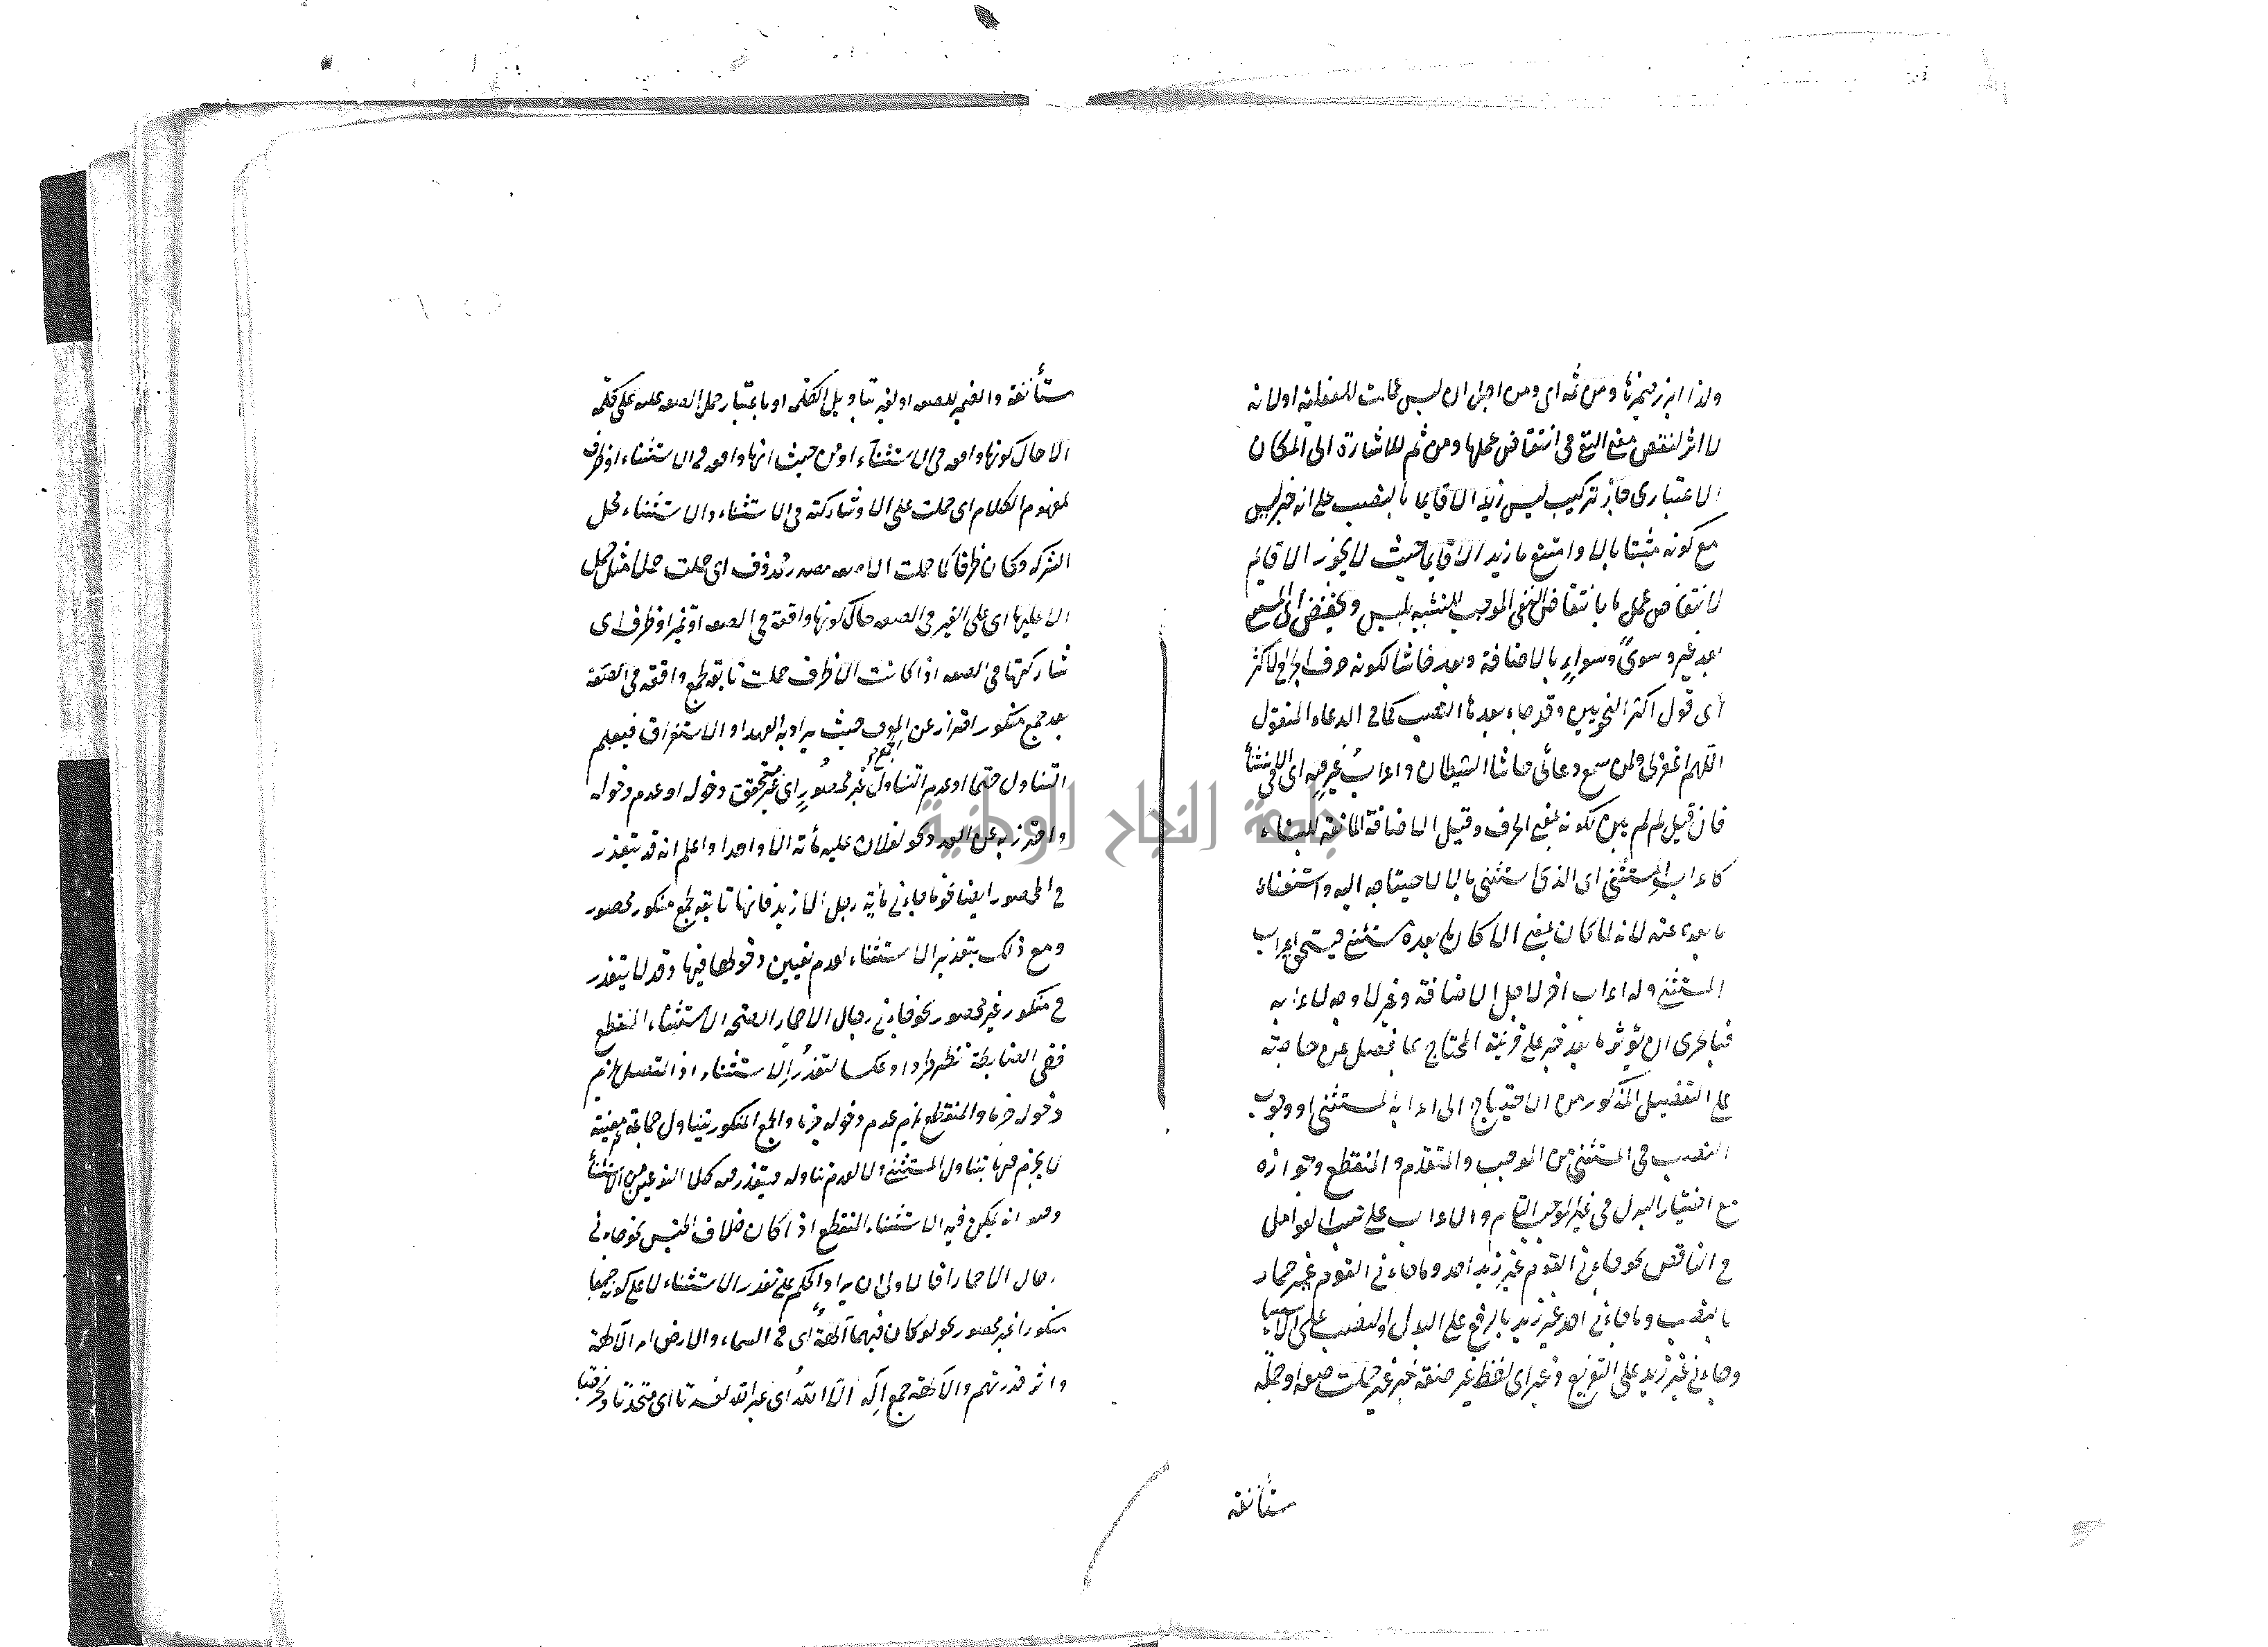 ولذا ابرز ضميرها ومن ثمه اى ومن اجل ان ليس عملت للفعلية اولانه
لا اثر لنقض معنى النفى فى انتقاض عملها ومن ثم للاشارة الى المكان
الاعتبارى جاز تركيب ليس زيد الا قايما بالنصب على انه خبر ليس
مع كونه مثبتا بالا وامتنع ما زيد الا قايما حيث لا يجوز الا قايم
لانتقاض عمل ما بانتقاض النفى الموجب للتشبيه بليس ويخفض اى المستثنى
بعد غير وسوىً وسواءٍ بالاضافة وبعد حاشا لكونه حرف الجر فى الاكثر
اى قول اكثر النحويين وقد جاء بعدها النصب كما فى الدعاء المنقول
اللهم اغفر لى ولمن سمع دعائى حاشا الشيطان واعراب غير فيه اى فى الاستثنأ
فان قيل لم لم يبن لكونه بمعنى الحرف وقيل الاضافة المانعة للبناء
كاعراب المستثنى اى الذى استثنى بالا لاحتياجه اليه واستغناء
ما بعده عنه لانه لما كان بمعنى الا كان ما بعده مستثنى فيستحق اعراب
المستثنى وله اعراب اخر لاجل الاضافة وغير لا وجه لاعرابه
فبالحرى ان يؤثر ما بعد غير على قرينة المحتاج بما فصل عن حاجته
على التفصيل المذكور من الاحتياج الى اعراب المستثنى او وجوب
النصب فى المستثنى من الموجب والمتقدم والمنقطع وجوازه
مع اختيار البدل فى غير الموجب التام والاعراب على حسب العوامل
فى الناقص نحو جاءنى القوم غير زيد احد وما جاءنى القوم غير حمار
بالنصب وما جاءنى احد غير زيد بالرفع على البدل او النصب على الاستثناء
وجاءنى غير زيد على التفريغ وغير اى لفظ غير صفة خبر غير حملت صفة او جملة
ستأنفة
ستأنفة والضمير للصفة او لغير بتاويل الكلمة او باعتبار حمل الصفة عليه على كلمة
الا حال كونها واقعة فى الاستثناء او من حيث انها واقعة فى الاستثناء او ظرف
لمفهوم الكلام اى حملت على الا وشاركته فى الاستثناء والاستثناء محل
الشركة وكان ظرفا كما حملت الا صفة مصدر محذوف اى حملت حملا مثل حمل
الا عليها اى على الغير فى الصفة حال كونها واقعة فى الصفة او تميز او ظرف اى
شاركتها فى الصفة اذا كانت الا ظرف حملت تابعة لجمع واقعة فى الصفة
بعد جمع منكور احتراز عن المعرف حيث يراد به العهد او الاستغراق فيعلم
التناول حتما او عدم التناول غير محصورٍ اى غير متحقق دخوله او عدم دخوله
واحترز به عن العدد نحو لفلان عليه مأته الا واحدا واعلم انه قد يتعذر
فى المحصور ايضا نحو ما جاءنى مأية رجل الا زيد فانها تابعة لجمع منكور محصور
ومع ذلك يتعذر الاستثناء لعدم تعيين دخولها فيها وقد لا يتعذر
فى منكور غير محصور نحو جاءنى رجال الا حمارا لصحة الاستثناء المنقطع
ففى الضابطة نظر طردا وعكسا لتعذر الاستثناء اذ المتصل لزم
دخوله جزما والمنقطع لزم عدم دخوله جزما والجمع المنكور يتناول جماعة معينة
لا يجزم فيها بتناول المستثنى ولا لعدم تناوله فيتعذر فيه كلا النوعين من الاستثنأ
وفيه انه يمكن فيه الاستثناء المنقطع اذا كان خلاف الجنس نحو جاءنى
رجال الا حمارا فالاولى ان يراد الحكم على تعذر الاستثناء لا على كونه جمعا
منكورا غير محصور نحو لو كان فيهما آلهةٌ اى فى السماء والارض امر الآلهة
واثر قدرتهم والآلهة جمع اله الا الله اى غير الله لفسدتا اى متحدتا
جامعة النجاح الوطنية